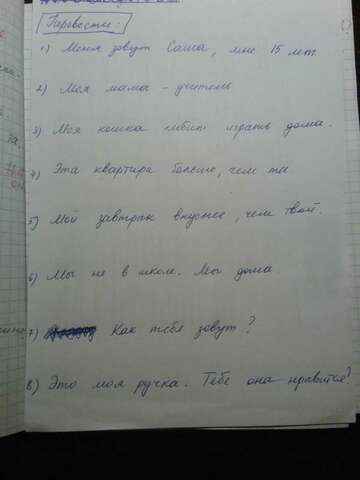 Перевости:
1) Меня зовут Саша, мне 15 лет.
2) Моя мама - учитель
3) Моя кошка любит играть дома.
4) Эта квартира больше, чем та
5) Мой завтрак вкуснее, чем твой.
6) Мы не в школе. Мы дома
7) Как тебя зовут?
8) Это моя ручка. Тебе она нравится?